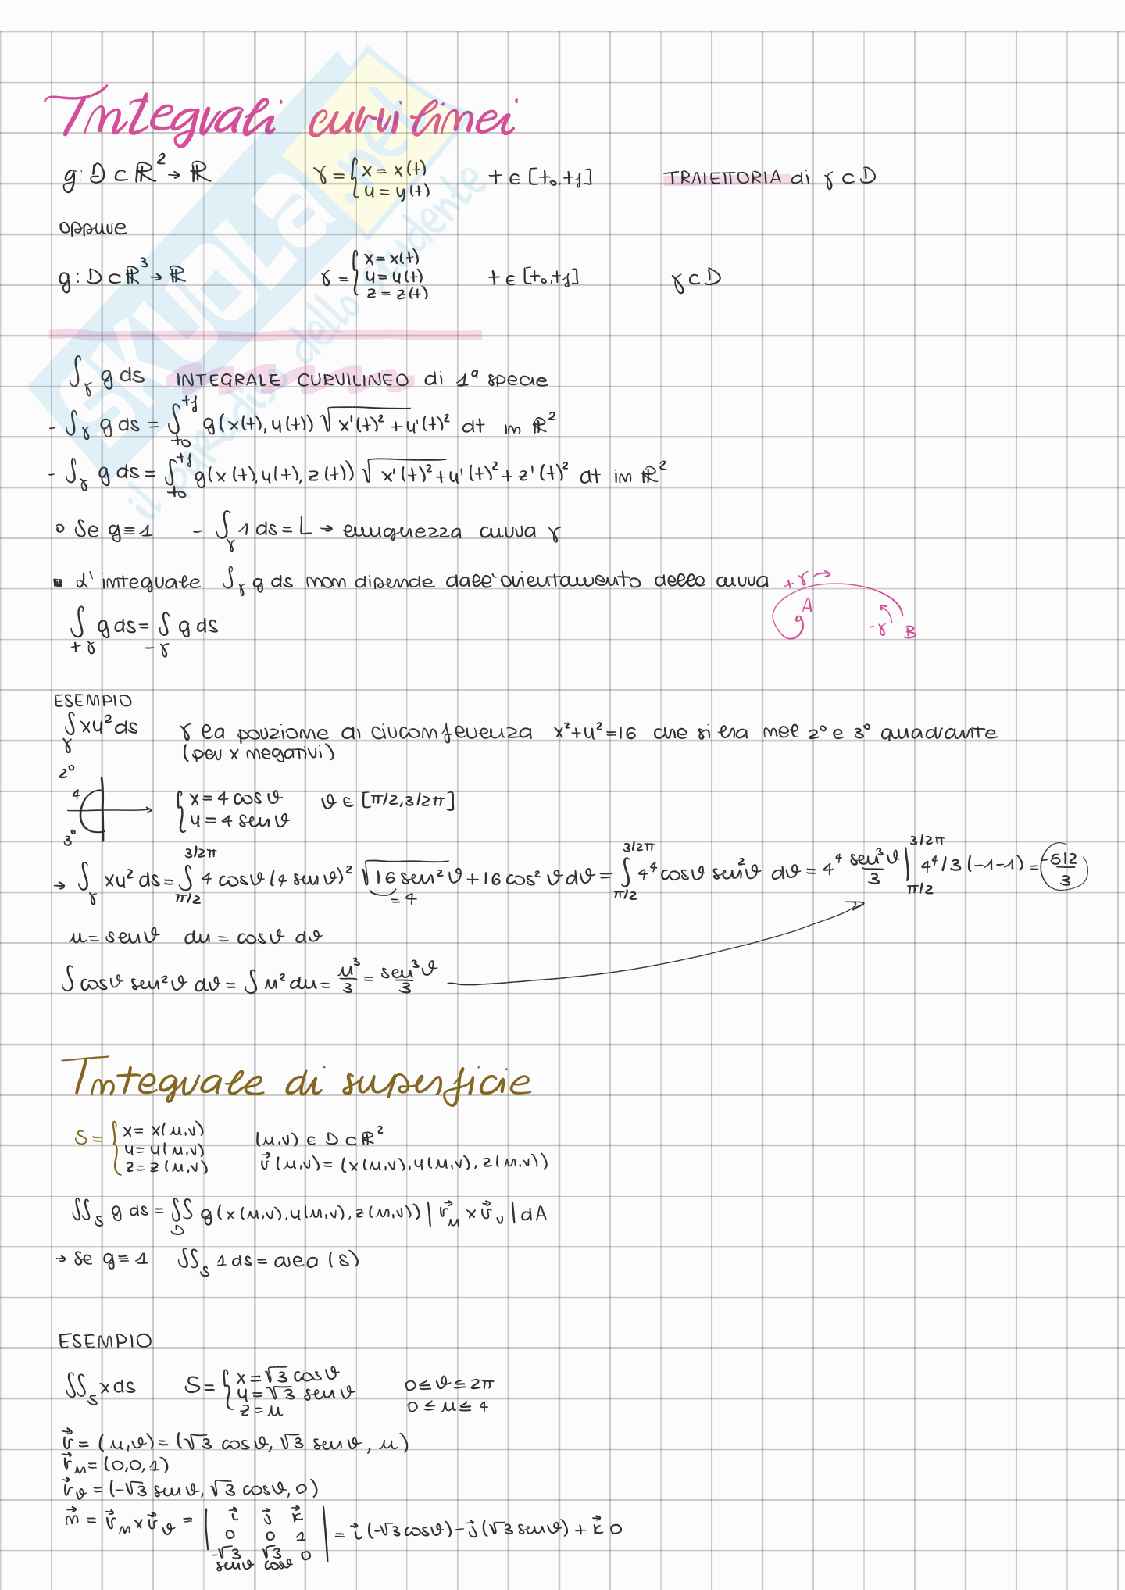 Integrali curvilinei
g: D ⊂ ℝ² → ℝ   γ = { x = x(t) y = y(t)   t ∈ [t₀, t₁]   TRAIETTORIA di γ ⊂ D
oppure
g: D ⊂ ℝ³ → ℝ   γ = { x = x(t) y = y(t) z = z(t)   t ∈ [t₀, t₁]   γ ⊂ D
∫_γ g ds INTEGRALE CURVILINEO di 1ª specie
- ∫_γ g ds = ∫_{t₀}^{t₁} g(x(t), y(t)) √(x'(t)² + y'(t)²) dt in ℝ²
- ∫_γ g ds = ∫_{t₀}^{t₁} g(x(t), y(t), z(t)) √(x'(t)² + y'(t)² + z'(t)²) dt in ℝ²
○ Se g ≡ 1 - ∫_γ 1 ds = L → lunghezza curva γ
▪ L'integrale ∫_γ g ds non dipende dall'orientamento della curva +γ →
A g -γ B
∫_{+γ} g ds = ∫_{-γ} g ds
ESEMPIO
∫_γ xy² ds   γ la porzione di circonferenza x² + y² = 16 che si era nel 2° e 3° quadrante
(per x negativi)
2°
4
3°
{ x = 4 cos ϑ y = 4 sen ϑ   ϑ ∈ [π/2, 3/2π]
→ ∫_γ xy² ds = ∫_{π/2}^{3/2π} 4 cos ϑ (4 sen ϑ)² √(16 sen² ϑ + 16 cos² ϑ) dϑ = ∫_{π/2}^{3/2π} 4⁴ cos ϑ sen² ϑ dϑ = 4⁴ sen³ ϑ/3 |_{π/2}^{3/2π} 4⁴/3 (-1-1) = -512/3
= 4
u = sen ϑ   du = cos ϑ dϑ
∫ cos ϑ sen² ϑ dϑ = ∫ u² du = u³/3 = sen³ ϑ/3
Integrale di superficie
S = { x = x(u,v) y = y(u,v) z = z(u,v)   (u,v) ∈ D ⊂ ℝ²
r⃗(u,v) = (x(u,v), y(u,v), z(u,v))
∬_S g ds = ∬_D g(x(u,v), y(u,v), z(u,v)) | r⃗_u × r⃗_v | dA
→ Se g ≡ 1   ∬_S 1 ds = area (S)
ESEMPIO
∬_S x ds   S = { x = √3 cos ϑ y = √3 sen ϑ z = u   0 ≤ ϑ ≤ 2π   0 ≤ u ≤ 4
r⃗ = (u,ϑ) = (√3 cos ϑ, √3 sen ϑ, u)
r⃗_u = (0,0,1)
r⃗_ϑ = (-√3 sen ϑ, √3 cos ϑ, 0)
n⃗ = r⃗_u × r⃗_ϑ = | i⃗ j⃗ k⃗ 0 0 1 -√3 sen ϑ √3 cos ϑ 0 | = i⃗ (-√3 cos ϑ) - j⃗ (√3 sen ϑ) + k⃗ 0
SKUOLA.net
il paradiso dello studente